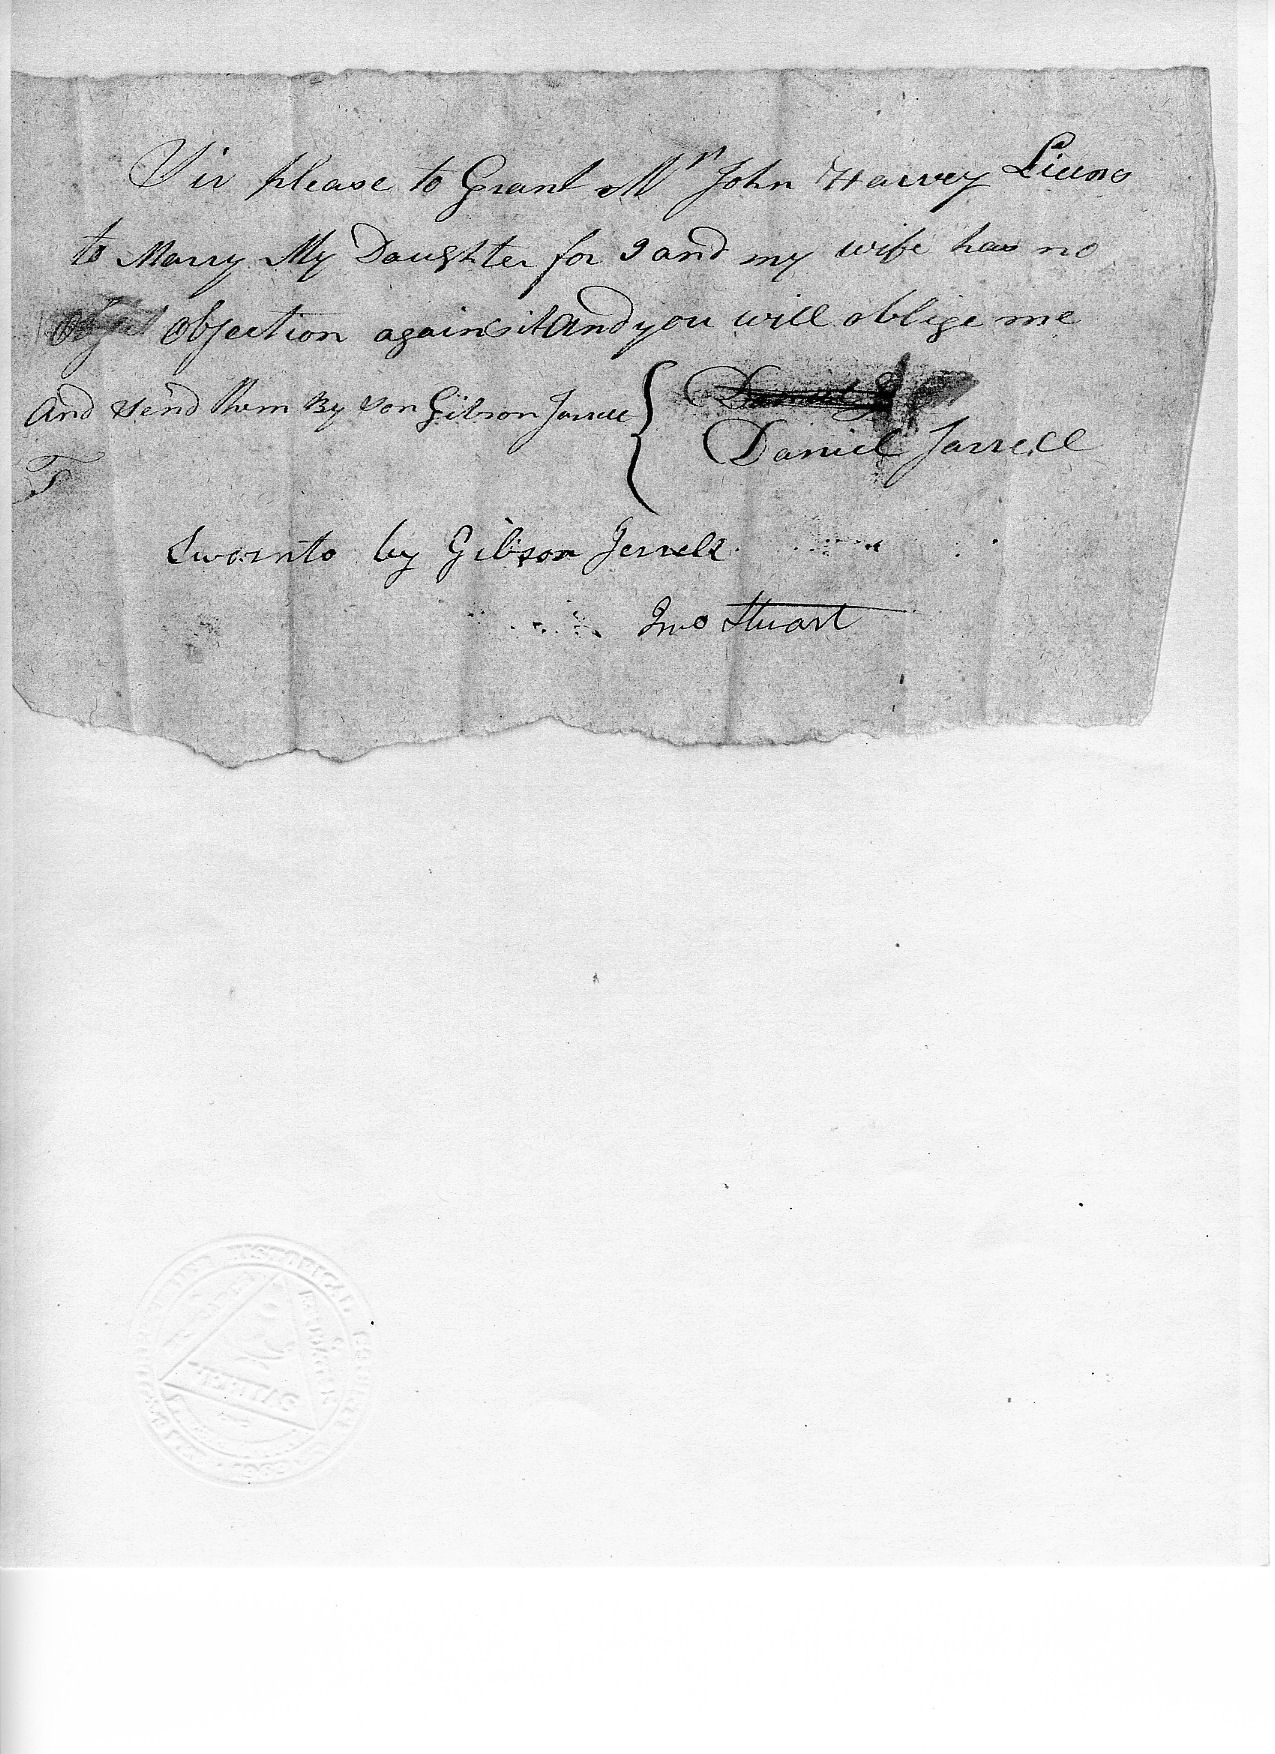 Sir please to Grant Mr John Harvey Licens
to Marry My Daughter for I and my wife has no
objection against it and you will oblige me
And send them By Son Gibson Jarrell
Daniel Jarrell
Sworn to by Gibson Jerrell
Jno Stuart
HISTORICAL
VERITAS
1963